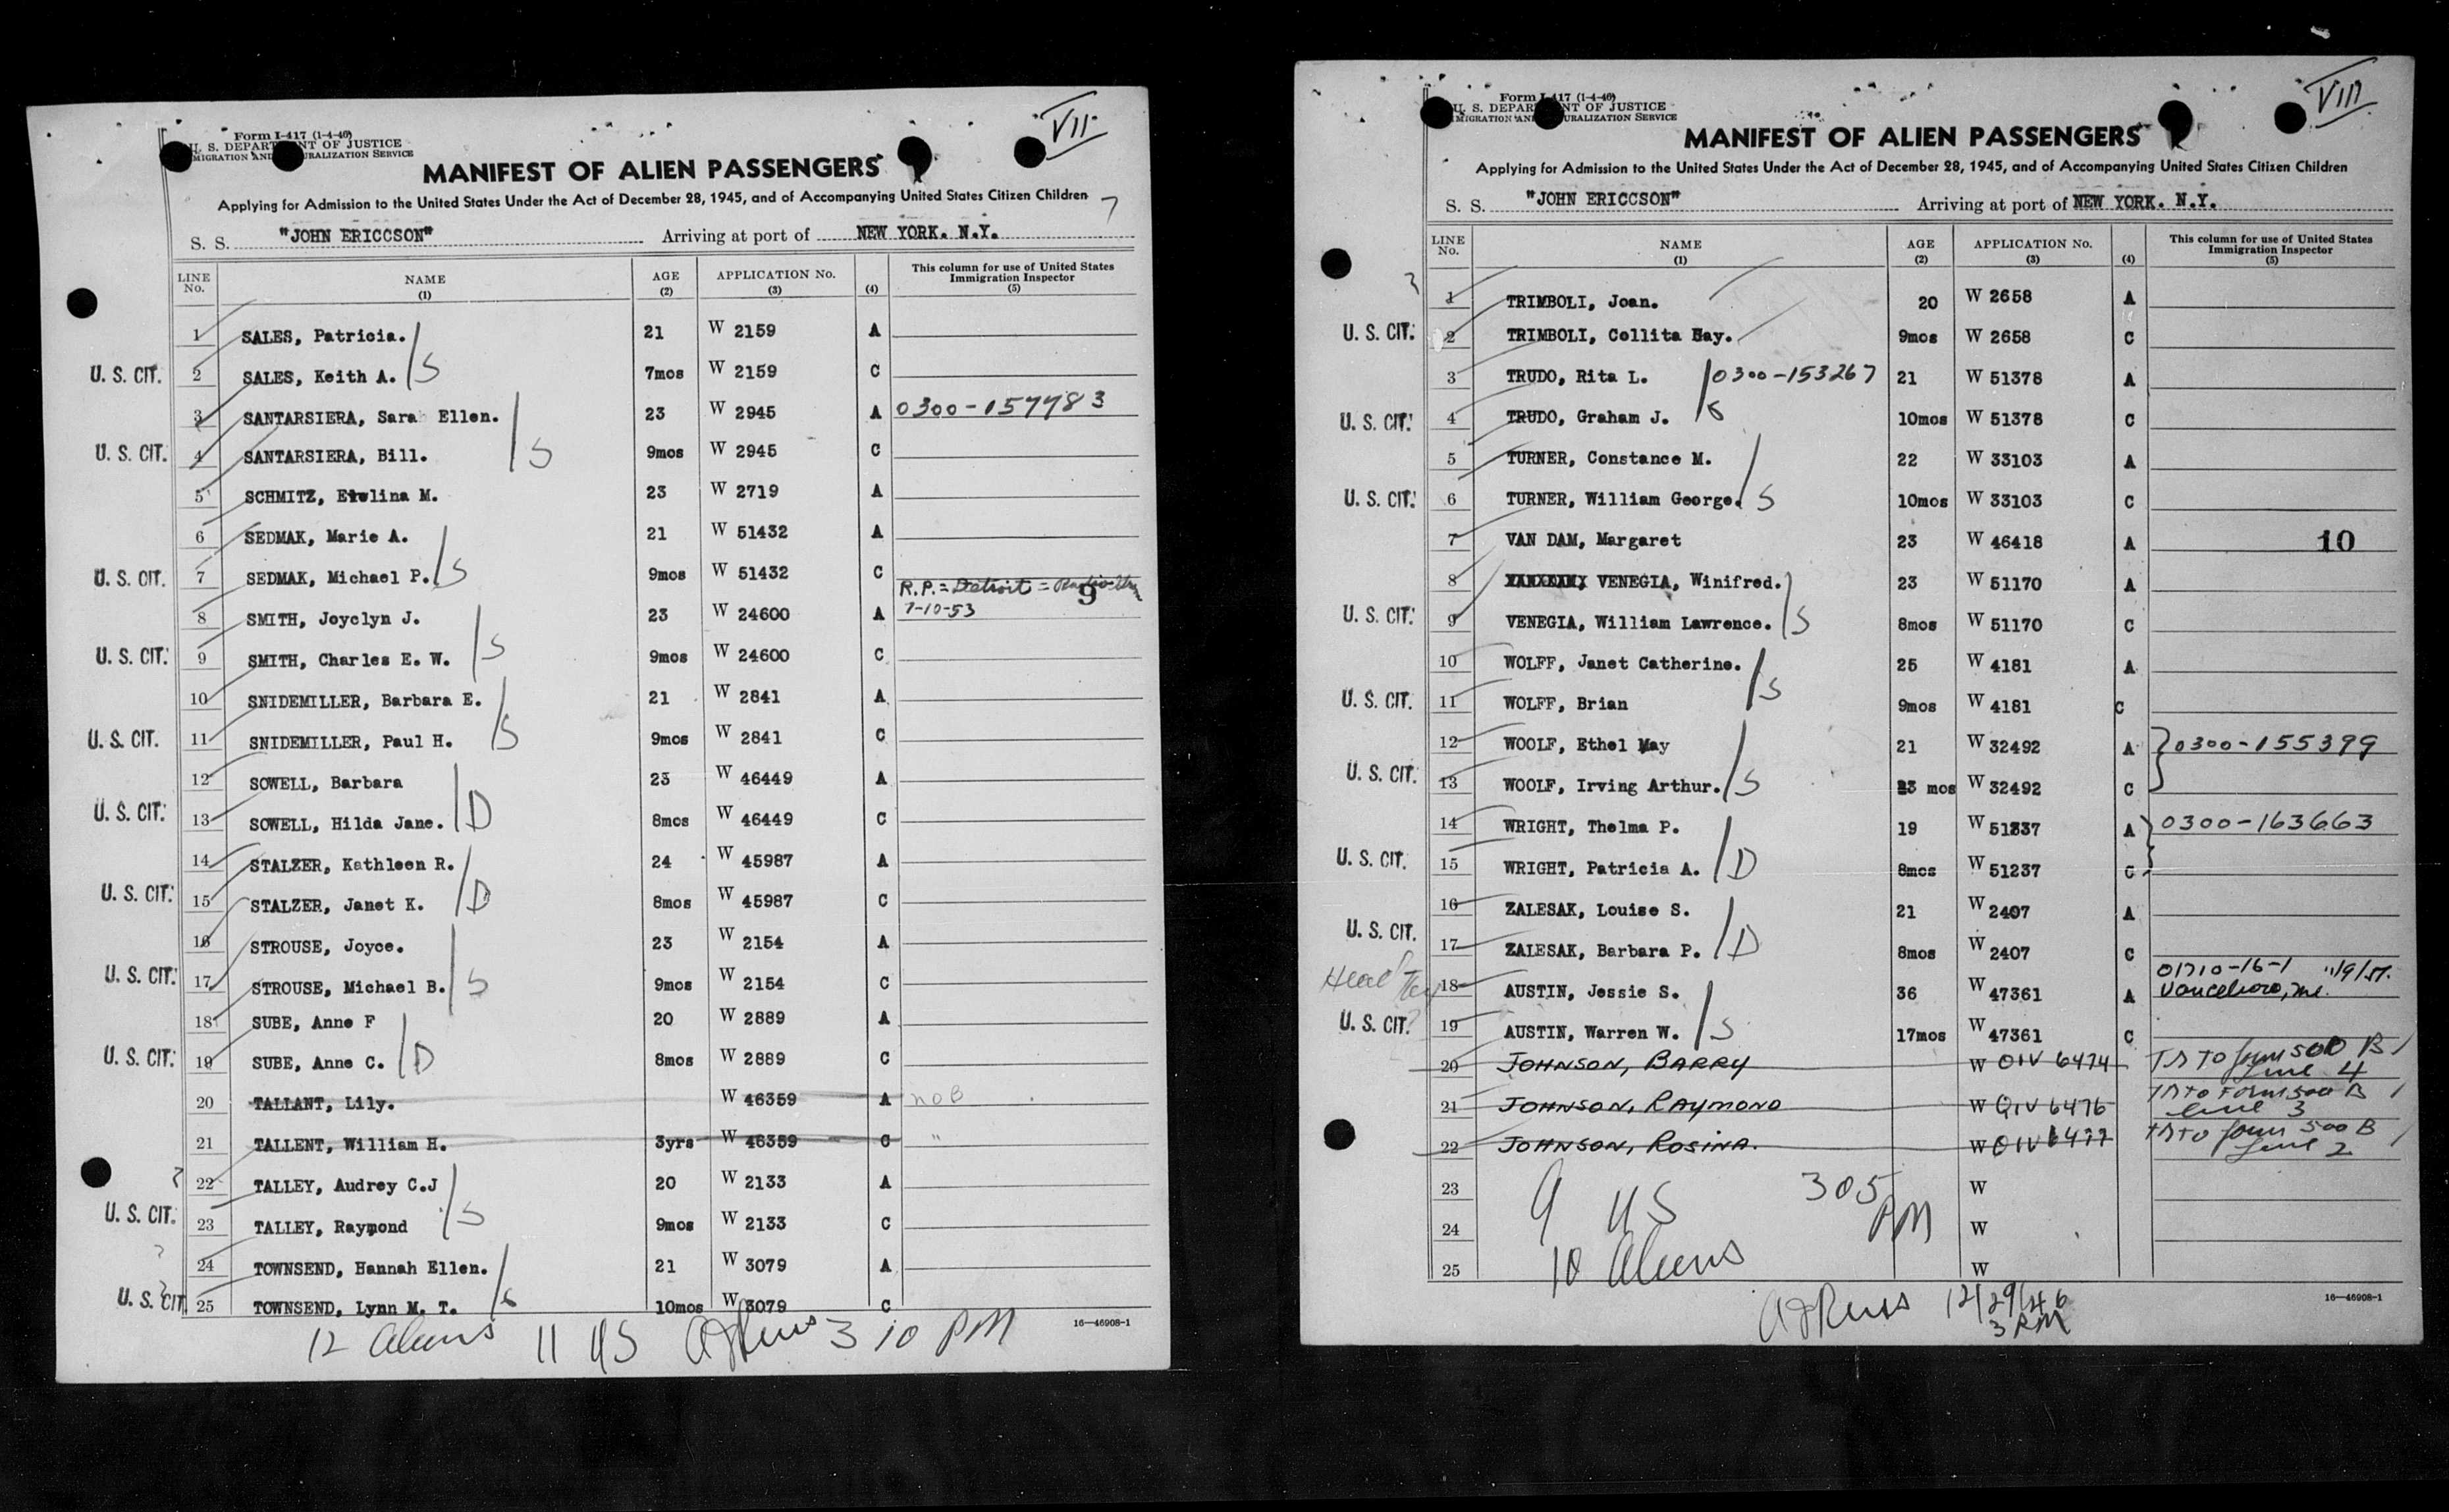 VII
Form I-417 (1-4-46)
U. S. DEPARTMENT OF JUSTICE
IMMIGRATION AND NATURALIZATION SERVICE
MANIFEST OF ALIEN PASSENGERS
Applying for Admission to the United States Under the Act of December 28, 1945, and of Accompanying United States Citizen Children
7
S. S. "JOHN ERICCSON" Arriving at port of NEW YORK. N.Y.
LINE No. NAME (1) AGE (2) APPLICATION No. (3) (4) This column for use of United States Immigration Inspector (5)
1 SALES, Patricia. 21 W 2159 A
U. S. CIT. 2 SALES, Keith A. S 7mos W 2159 C
3 SANTARSIERA, Sara Ellen. 23 W 2945 A 0300-157783
U. S. CIT. 4 SANTARSIERA, Bill. S 9mos W 2945 C
5 SCHMITZ, M. 23 W 2719 A
6 SEDMAK, Marie A. 21 W 51432 A
U. S. CIT. 7 SEDMAK, Michael P. S 9mos W 51432 C
R.P. = Detroit = 9
8 SMITH, Joyclyn J. 23 W 24600 A 7-10-53
U. S. CIT. 9 SMITH, Charles E. W. S 9mos W 24600 C
10 SNIDEMILLER, Barbara E. 21 W 2841 A
U. S. CIT. 11 SNIDEMILLER, Paul H. S 9mos W 2841 C
12 SOWELL, Barbara 23 W 46449 A
U. S. CIT. 13 SOWELL, Hilda Jane. D 8mos W 46449 C
14 STALZER, Kathleen R. 24 W 45987 A
U. S. CIT. 15 STALZER, Janet K. D 8mos W 45987 C
16 STROUSE, Joyce. 23 W 2154 A
U. S. CIT. 17 STROUSE, Michael B. S 9mos W 2154 C
18 SUBE, Anne F 20 W 2889 A
U. S. CIT. 19 SUBE, Anne C. D 8mos W 2889 C
20 TALLANT, Lily. W 46359 A NOB
21 TALLENT, William H. 3yrs W 46359 C "
? 22 TALLEY, Audrey C.J 20 W 2133 A
U. S. CIT. 23 TALLEY, Raymond S 9mos W 2133 C
? 24 TOWNSEND, Hannah Ellen. 21 W 3079 A
U. S. CIT. 25 TOWNSEND, Lynn M. T. S 10mos W 3079 C
16—46908-1
12 Aliens 11 US 3 10 PM
VIII
Form I-417 (1-4-46)
U. S. DEPARTMENT OF JUSTICE
IMMIGRATION AND NATURALIZATION SERVICE
MANIFEST OF ALIEN PASSENGERS
Applying for Admission to the United States Under the Act of December 28, 1945, and of Accompanying United States Citizen Children
S. S. "JOHN ERICCSON" Arriving at port of NEW YORK. N.Y.
LINE No. NAME (1) AGE (2) APPLICATION No. (3) (4) This column for use of United States Immigration Inspector (5)
? 1 TRIMBOLI, Joan. 20 W 2658 A
U. S. CIT. 2 TRIMBOLI, Collita Hay. 9mos W 2658 C
3 TRUDO, Rita L. 0300-153267 21 W 51378 A
U. S. CIT. 4 TRUDO, Graham J. S 10mos W 51378 C
5 TURNER, Constance M. 22 W 33103 A
U. S. CIT. 6 TURNER, William George. S 10mos W 33103 C
7 VAN DAM, Margaret 23 W 46418 A 10
8 VENEGIA, Winifred. 23 W 51170 A
U. S. CIT. 9 VENEGIA, William Lawrence. S 8mos W 51170 C
10 WOLFF, Janet Catherine. 25 W 4181 A
U. S. CIT. 11 WOLFF, Brian S 9mos W 4181 C
12 WOOLF, Ethel May 21 W 32492 A 0300-155399
U. S. CIT. 13 WOOLF, Irving Arthur. S 23 mos W 32492 C
14 WRIGHT, Thelma P. 19 W 51237 A 0300-163663
U. S. CIT. 15 WRIGHT, Patricia A. D 8mos W 51237 C
16 ZALESAK, Louise S. 21 W 2407 A
U. S. CIT. 17 ZALESAK, Barbara P. D 8mos W 2407 C
Head Tax 18 AUSTIN, Jessie S. 36 W 47361 A 01710-16-1 Vanceboro, Me.
U. S. CIT. ? 19 AUSTIN, Warren W. S 17mos W 47361 C
20 JOHNSON, BARRY W QIV 6474 TR TO form 500 B Line 4
21 JOHNSON, RAYMOND W QIV 6476 TR TO FORM 500 B Line 3
22 JOHNSON, ROSINA. W QIV 6477 TR TO form 500 B Line 2
23 W
24 W
25 W
9 US 305 PM
10 Aliens
16—46908-1
12/29/46
3 PM